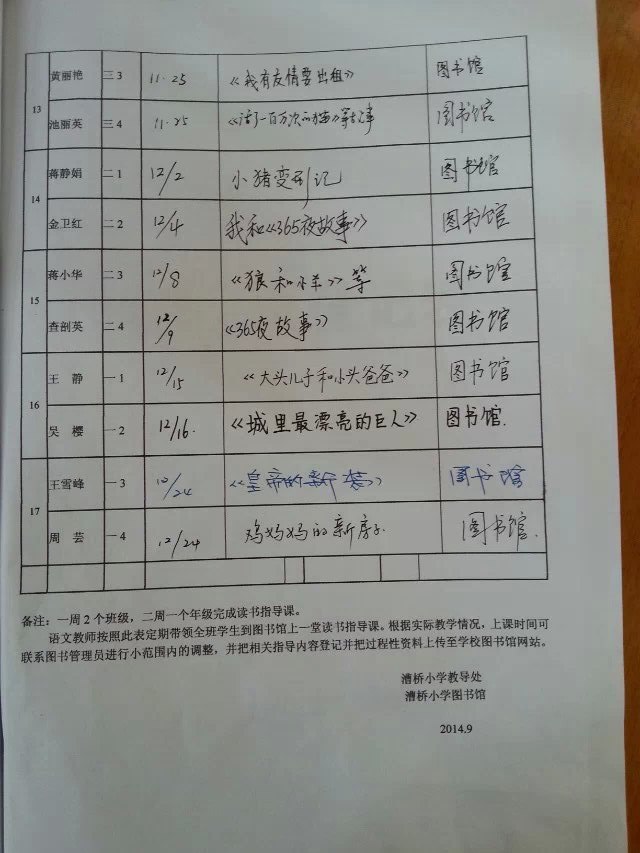 13 黄丽艳 三3 11.25 《我有友情要出租》 图书馆
池丽英 三4 11.25 《活了一百万次的猫》等故事 图书馆
14 蒋静娟 二1 12/2 小猪变形记 图书馆
金卫红 二2 12/4 我和《365夜故事》 图书馆
15 蒋小华 二3 12/8 《狼和小羊》等 图书馆
查剖英 二4 12/9 《365夜故事》 图书馆
16 王静 一1 12/15 《大头儿子和小头爸爸》 图书馆
吴樱 一2 12/16. 《城里最漂亮的巨人》 图书馆.
17 王雪峰 一3 12/24 《皇帝的新装》 图书馆
周芸 一4 12/24 鸡妈妈的新房子 图书馆.
备注：一周2个班级，二周一个年级完成读书指导课。
语文教师按照此表定期带领全班学生到图书馆上一堂读书指导课。根据实际教学情况，上课时间可
联系图书管理员进行小范围内的调整，并把相关指导内容登记并把过程性资料上传至学校图书馆网站。
漕桥小学教导处
漕桥小学图书馆
2014.9